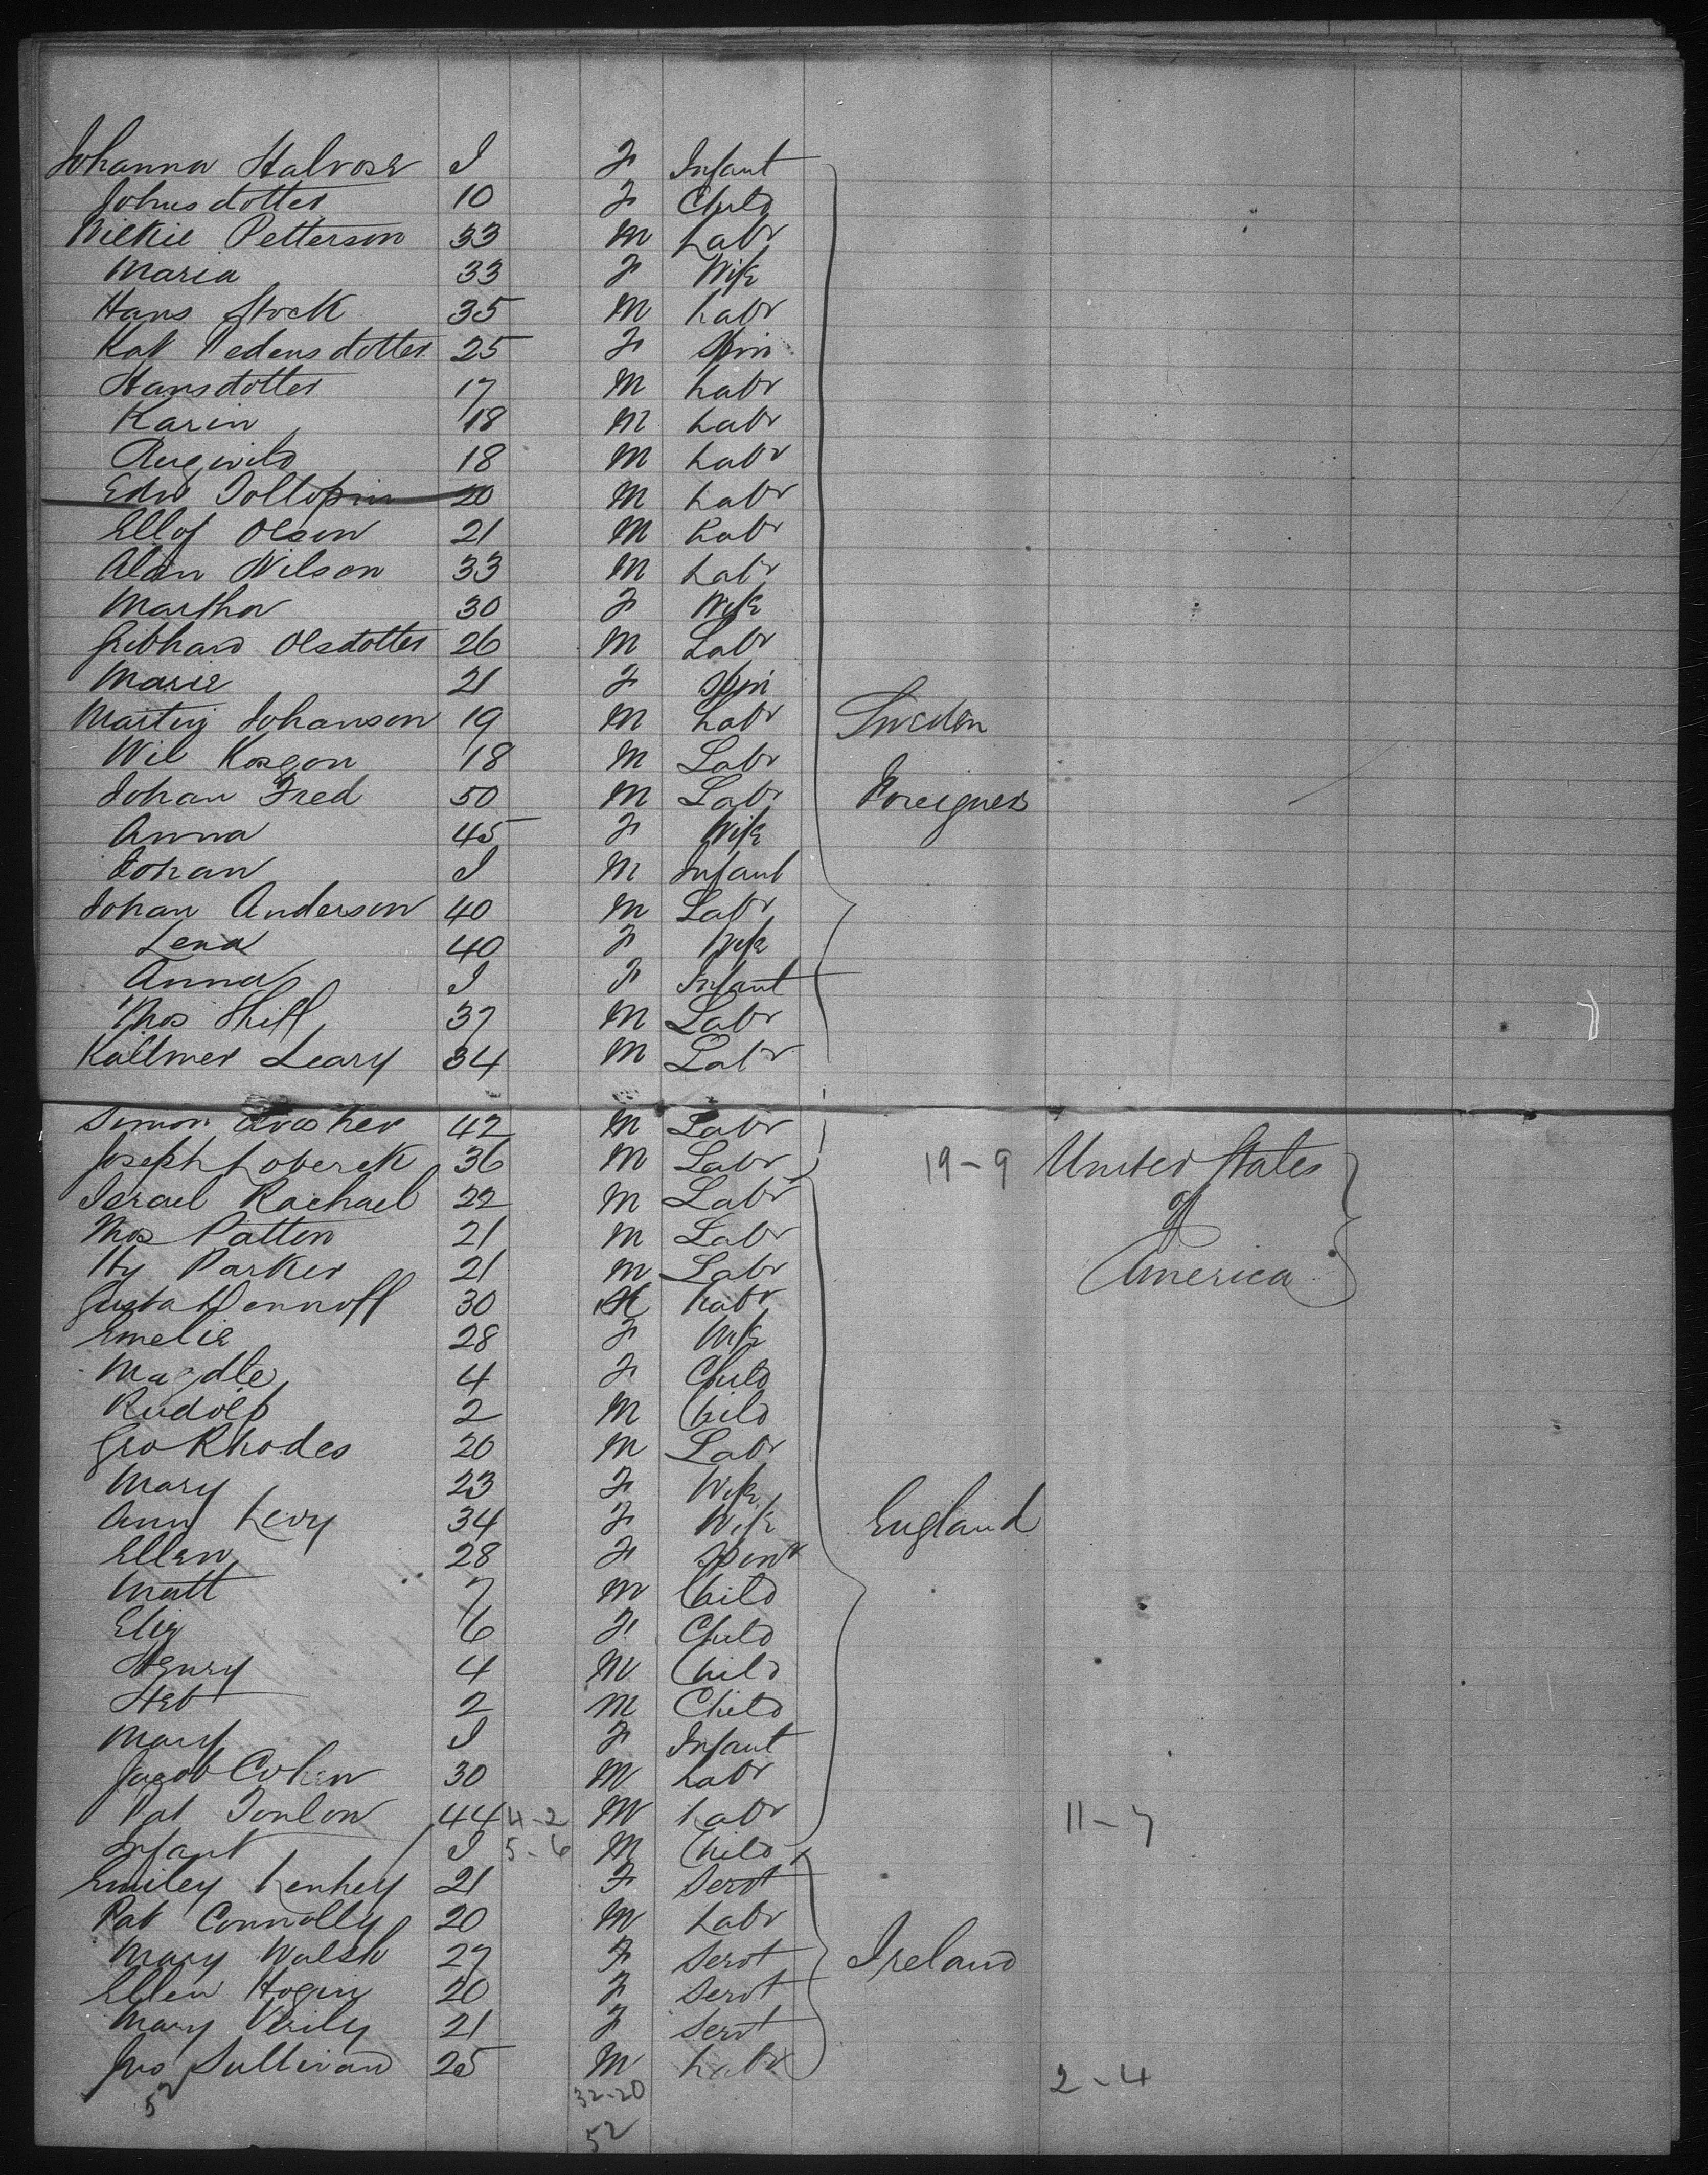 Johanna Halvose I F Infant
Johnsdotter 10 F Child
Nielkie Petterson 33 M Labr
Maria 33 F Wife
Hans Stock 35 M Labr
Kat Pedensdotter 25 F Spin
Hansdotter 17 M Labr
Karin 18 M Labr
18 M Labr
Edw 20 M Labr
Ellof Olson 21 M Labr
Alan Nilson 33 M Labr
Martha 30 F Wife
Gebhard Olsdotter 26 M Labr
Marie 21 F Spin
Martin Johanson 19 M Labr Sweden
Wil Kosgon 18 M Labr
Johan Fred 50 M Labr Foreigners
Anna 45 F Wife
Johan I M Infant
Johan Anderson 40 M Labr
Lena 40 F Wife
Anna I F Infant
Thos Hill 37 M Labr
Kallmer Leary 34 M Labr
Simon 42 M Labr
Joseph Loberek 36 M Labr 19-9 United States
Israel Rachael 22 M Labr
Thos Patton 21 M Labr of
Hy Parker 21 M Labr America
Gusta Dennoff 30 M Labr
Emelie 28 F Wife
Magdle 4 F Child
Rudolf 2 M Child
Geo Rhodes 20 M Labr
Mary 23 F Wife
Ann Levy 34 F Wife England
Ellen 28 F Spinr
Matt 7 M Child
Eliz 6 F Child
Henry 4 M Child
Heb 2 M Child
Mary I F Infant
Jacob Cohen 30 M Labr
Pat Tonlon 44 4-2 M Labr 11-7
Infant I 5-6 M Child
Emiley Kenhey 21 F Servt
Pat Connolly 20 M Labr
Mary Walsh 27 F Servt Ireland
Ellen Hogin 20 F Servt
Mary Verily 21 F Servt
Jno Sullivan 25 M Labr 2-4
52 32-20
52